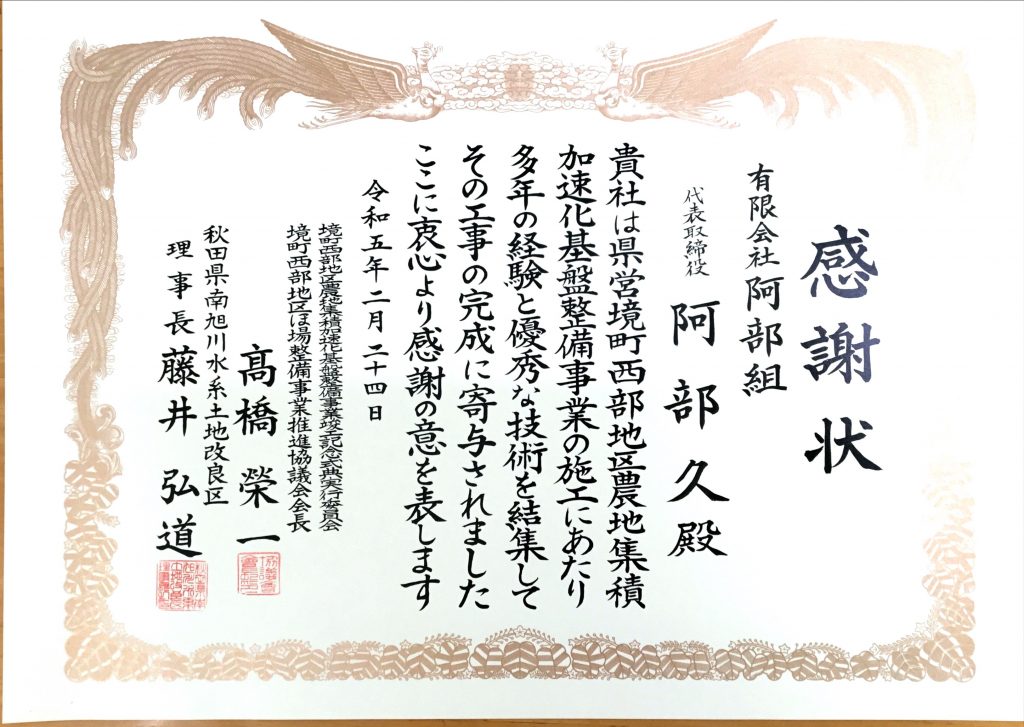 感謝状
有限会社 阿部組
代表取締役 阿部久殿
貴社は県営境町西部地区農地集積
加速化基盤整備事業の施工にあたり
多年の経験と優秀な技術を結集して
その工事の完成に寄与されました
ここに衷心より感謝の意を表します
令和五年二月二十四日
境町西部地区農地集積加速化基盤整備事業竣工記念式典実行委員会
境町西部地区ほ場整備事業推進協議会会長
髙橋榮一
秋田県南旭川水系土地改良区
理事長 藤井弘道